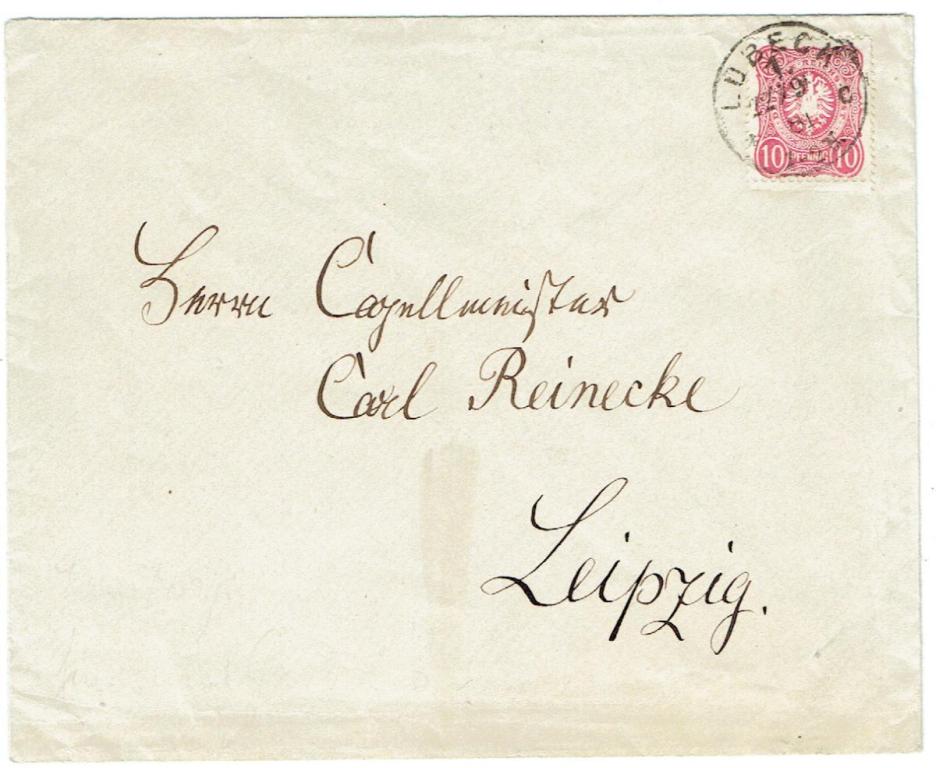 LÜBECK
1.
C
10 PFENNIG 10
Herrn Capellmeister
Carl Reinecke
Leipzig.